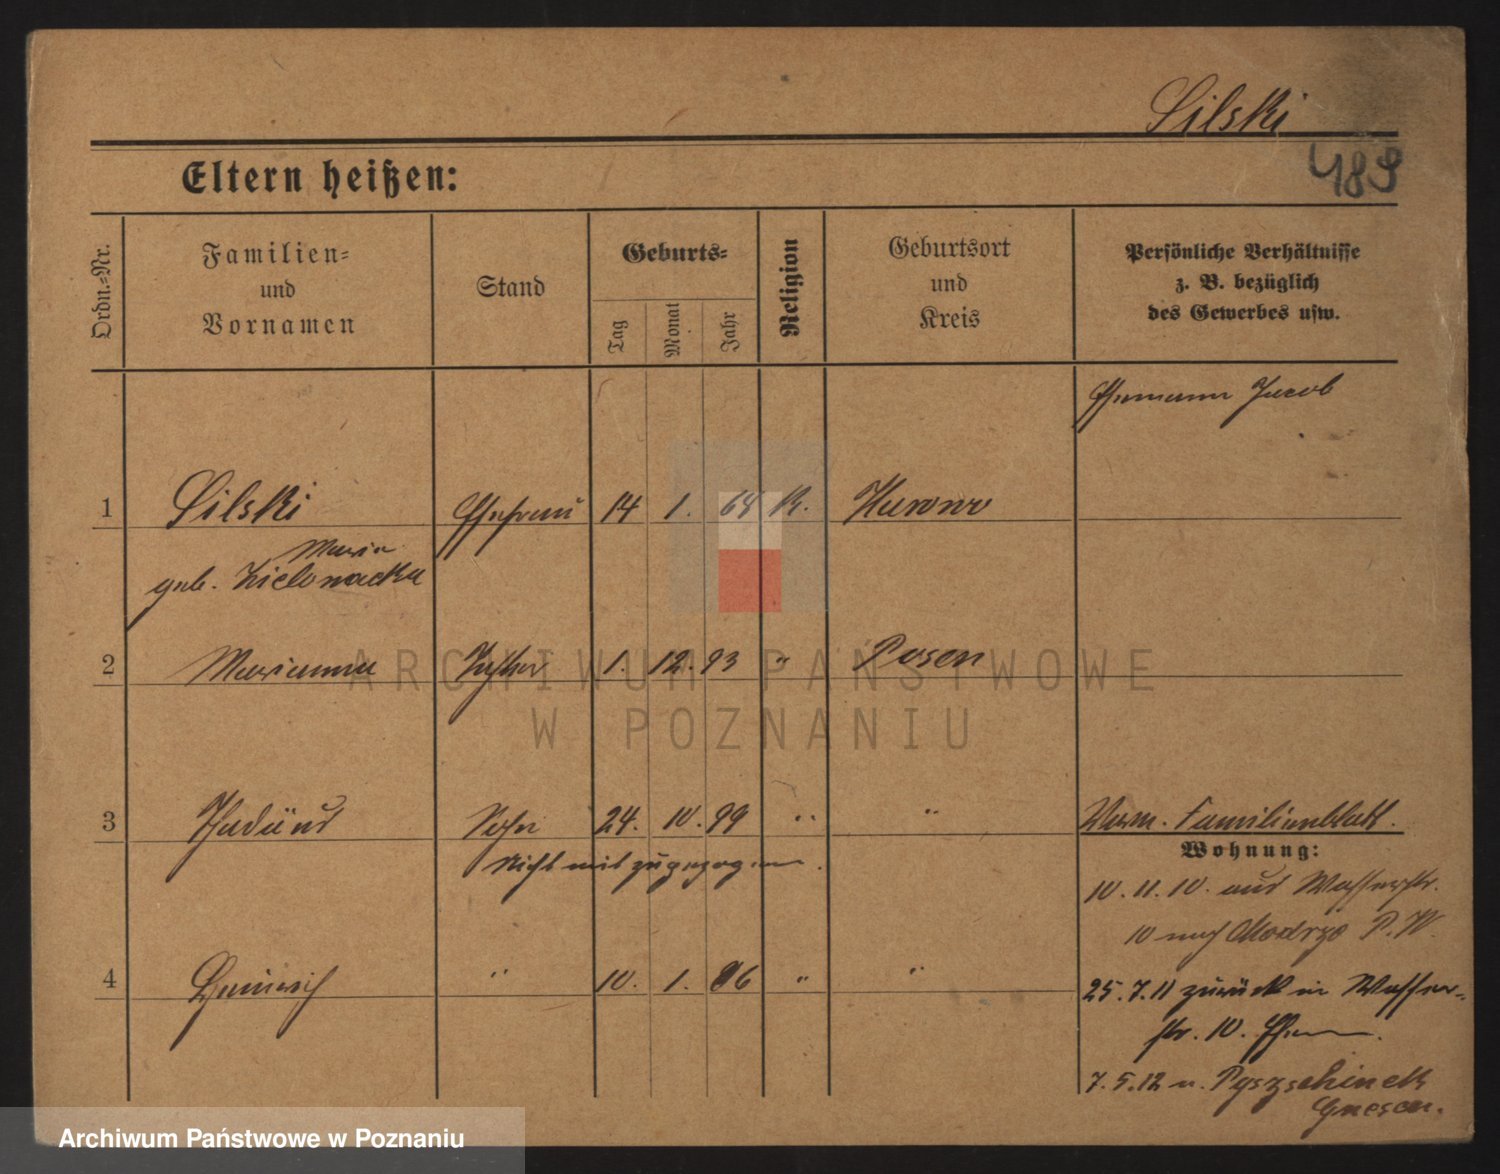 Silski
489
Eltern heißen:
Ordn.-Nr.
Familien-
und
Vornamen
Stand
Geburts-
Tag
Monat
Jahr
Religion
Geburtsort
und
Kreis
Persönliche Verhältnisse
z. B. bezüglich
des Gewerbes usw.
Ehemann Jacob
1 Silski Ehefrau 14 1. 64 K. Kurowo
Maria
geb. Zielonacka
2 Marianna Tochter 1. 12. 93 " Posen
ARCHIWUM PAŃSTWOWE
W POZNANIU
3 Thadäus Sohn 24. 10. 99 " " Verm. Familienblatt.
nicht mit zugezogen.
Wohnung:
10. 11. 10. aus Wasserstr.
10 nach Modrze P. W.
4 Heinrich " 10. 1. 96 " "
25. 7. 11 zurück in Wasser-
str. 10.
7. 5. 12 n. Pyszschinek
Gnesen.
Archiwum Państwowe w Poznaniu